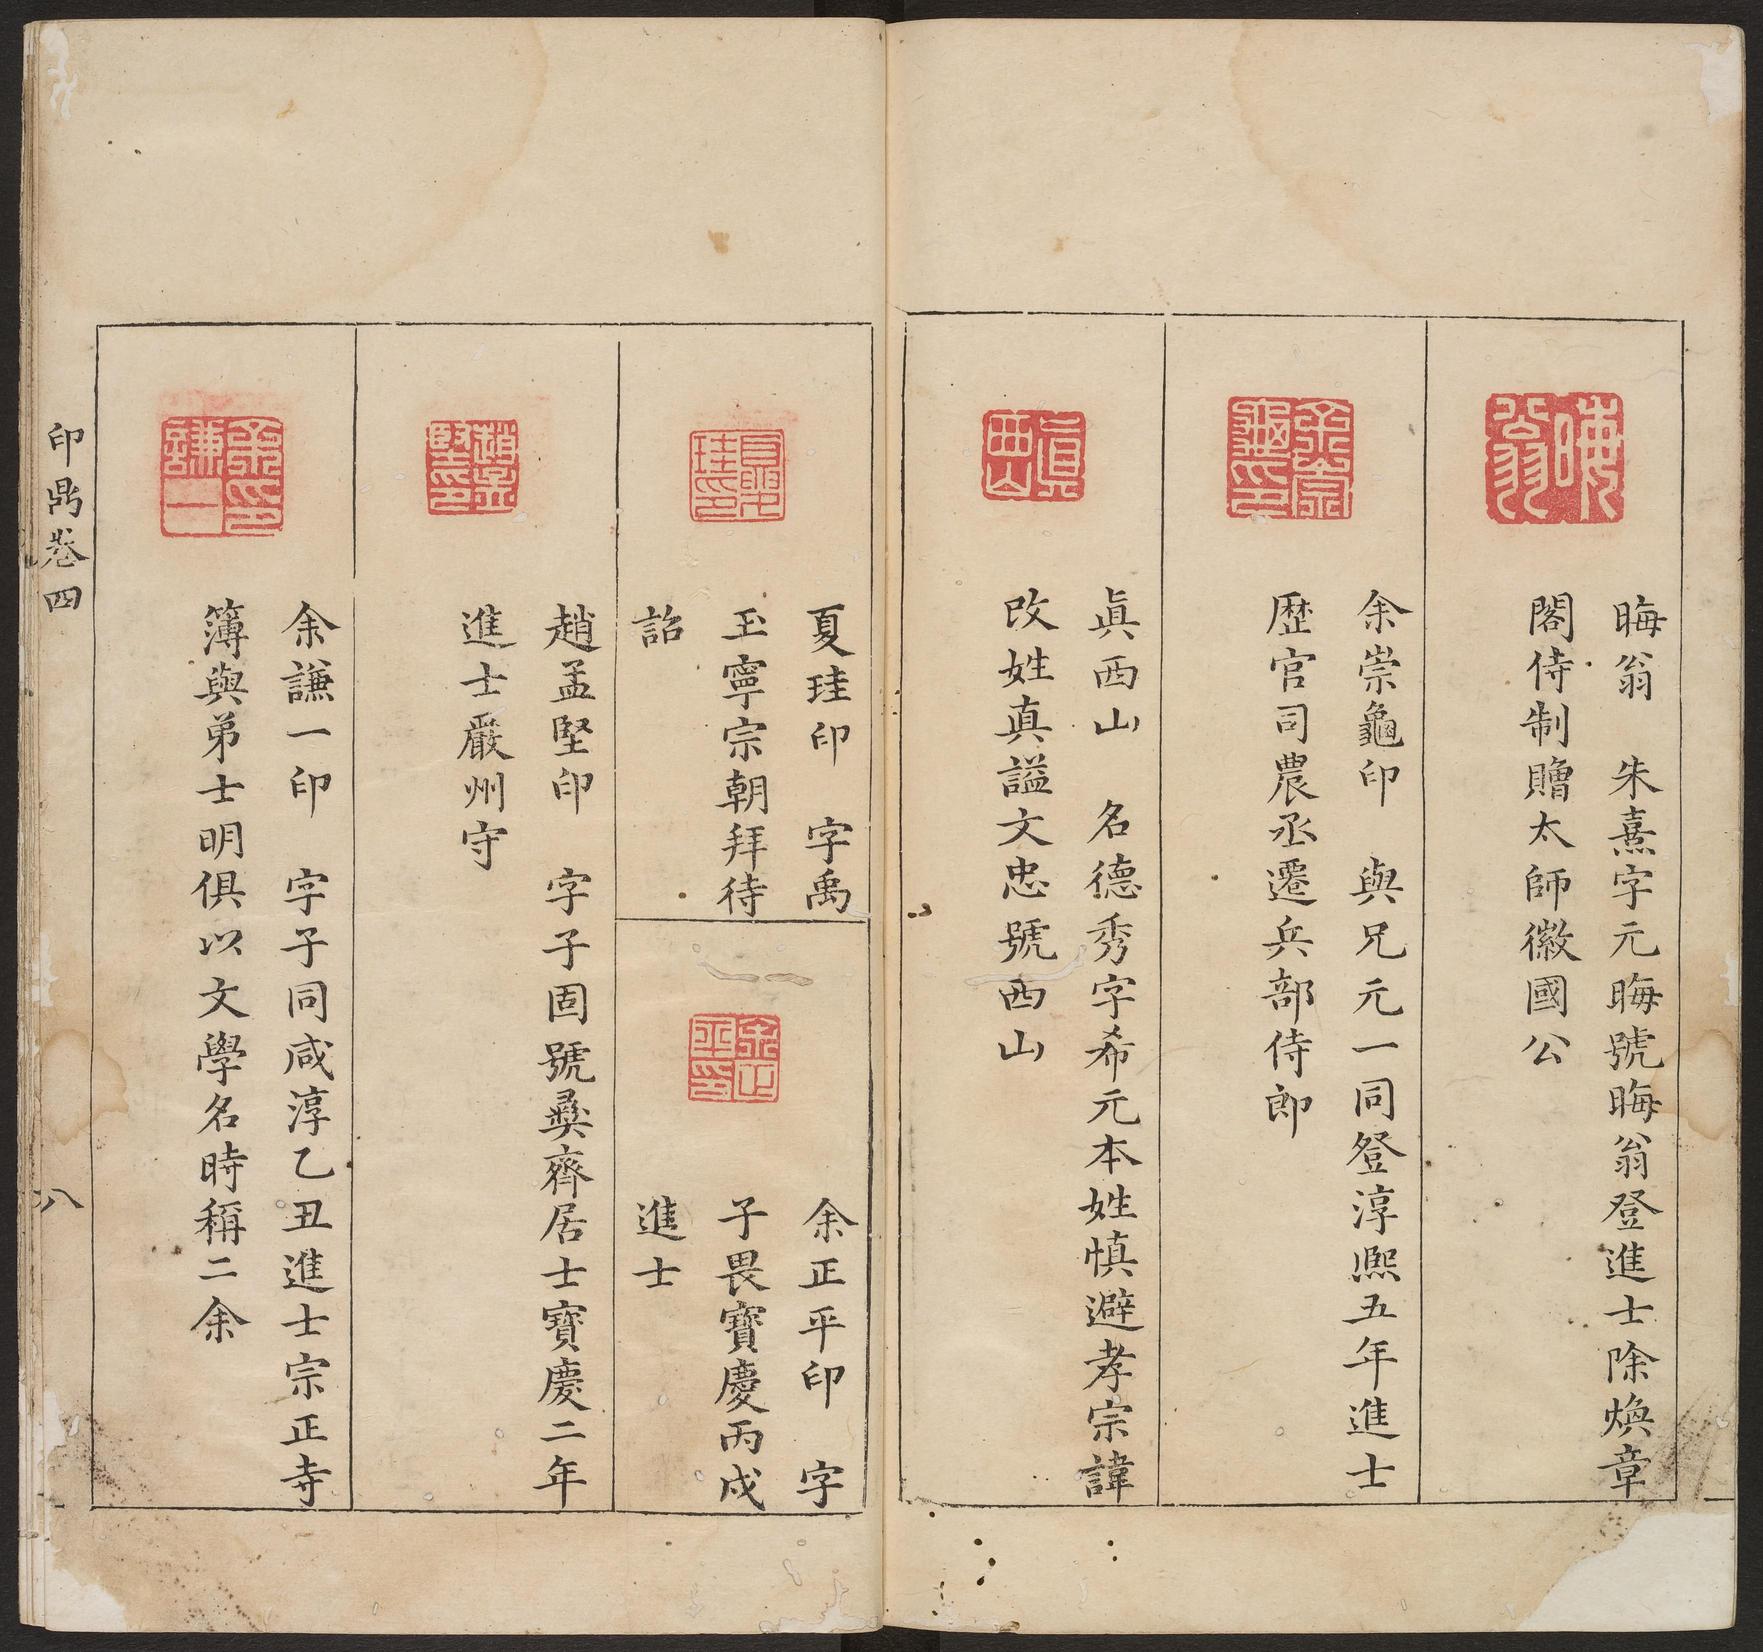 晦翁
晦翁　朱熹字元晦號晦翁登進士除煥章
閣侍制贈太師徽國公
余崇龜印
余崇龜印　與兄元一同登淳熈五年進士
歷官司農丞遷兵部侍郎
眞西山
眞西山　名德秀字希元本姓慎避孝宗諱
改姓真謚文忠號西山
夏珪印
夏珪印　字禹
玉寧宗朝拜待
詔
余正平印
余正平印　字
子畏寶慶丙戌
進士
趙孟堅印
趙孟堅印　字子固號彝齊居士寶慶二年
進士嚴州守
余謙一印
余謙一印　字子同咸淳乙丑進士宗正寺
簿與弟士明俱以文學名時稱二余
印鼎卷四
八